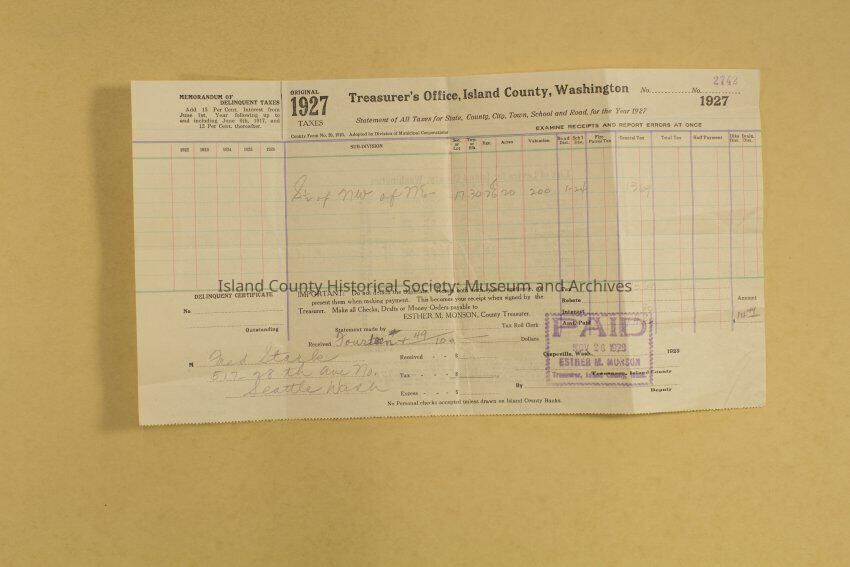 2742
MEMORANDUM OF
DELINQUENT TAXES
Add 15 Per Cent. Interest from
June 1st, Year following up to
and including June 6th, 1917, and
12 Per Cent. thereafter.
ORIGINAL
1927
TAXES
Treasurer's Office, Island County, Washington
No. No.
1927
Statement of All Taxes for State, County, City, Town, School and Road, for the Year 1927
County Form No. Adopted for Division of Municipal Corporations
EXAMINE RECEIPTS AND REPORT ERRORS AT ONCE
SUB-DIVISION
Sec. or Lot Twp. or Blk. Rge. Acres Valuation Road Dist. Sch'l Dist. Fire Patrol Tax General Tax Total Tax Half Payment
of NW of 17 30 20 200
Island County Historical Society: Museum and Archives
DELINQUENT CERTIFICATE
No
Outstanding
IMPORTANT: Do not
present them when making payment. This becomes your receipt when signed by the
Treasurer. Make all Checks, Drafts or Money Orders payable to
ESTHER M. MONSON, County Treasurer.
Rebate
Interest
Amt. Paid
Amount
Statement made by Tax Roll Clerk
Received Fourteen + 49/100 Dollars
M Fred Stark
517- 28 th Ave No.
Seattle Wash
Received - - $
Tax - - - - $
Excess - - - - $
Coupeville, Wash. 1928
PAID
NOV 26 1928
ESTHER M. MONSON
Treasurer, Island County, Wash.
Treasurer, Island County
By Deputy
No Personal checks accepted unless drawn on Island County Banks.